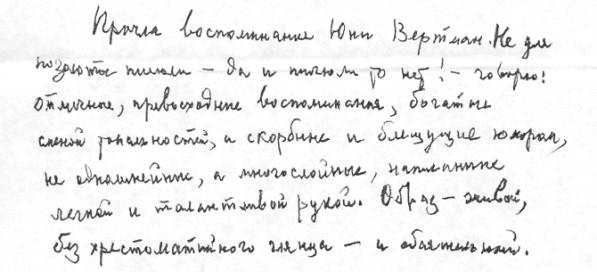 Прочла воспоминание Юны Вертман. Не для
похвалы пишем – да и писем то нет! – говорю!
отличное, превосходные воспоминания, богатые
сменой тональностей, и скорбные и блещущие юмором,
не однолинейные, а многослойные, написанные
легкой и талантливой рукой. Образ – живой,
без хрестоматийного глянца – и обаятельный.